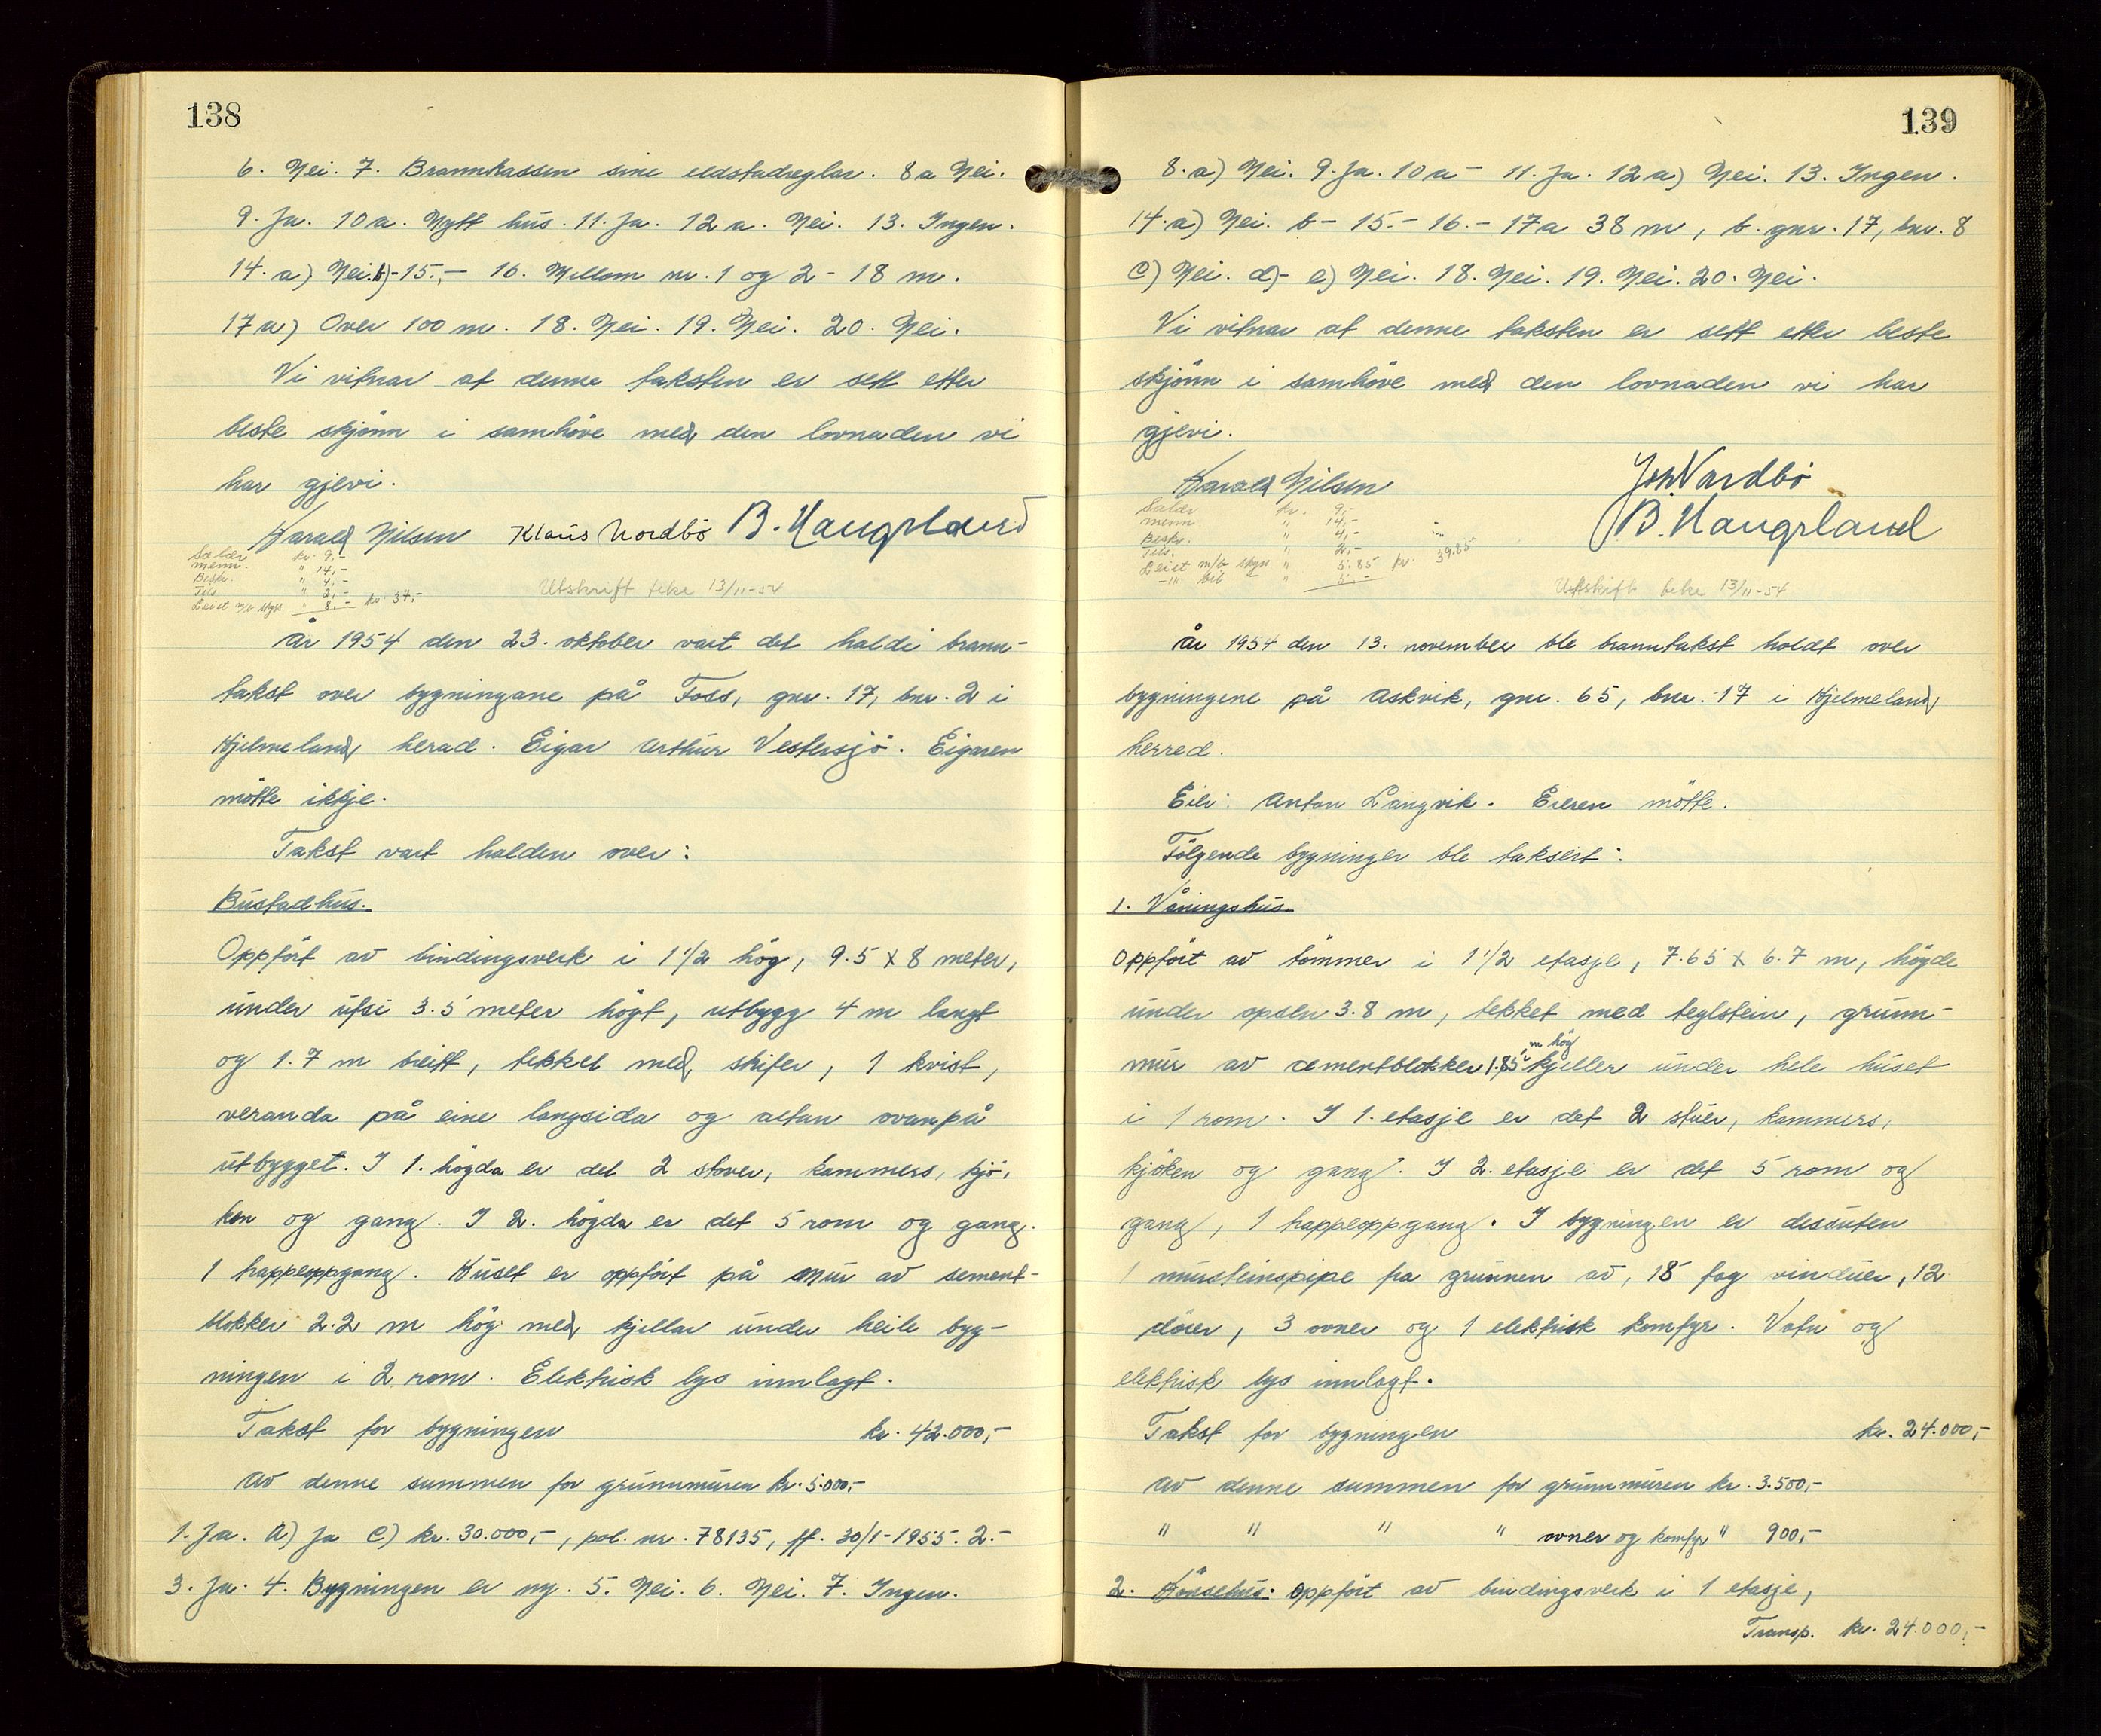 138
6. Nei. 7. Brannkassen sine eldstadreglar. 8a Nei.
9. Ja. 10a. Nytt hus. 11. Ja. 12a. Nei. 13. Ingen.
14. a) Nei. b)- 15.,- 16. Millom nr. 1 og 2 - 18 m.
17a) Over 100 m. 18. Nei. 19. Nei. 20. Nei.
Vi vitnar at denne taksten er sett etter
beste skjönn i samhöve med den lovnaden vi
har gjevi.
Harald Nilsen Klaus Nordbö B. Haugsland
Salær kr. 9,-
menn. " 14,-
Beskr. " 4,-
Tils. " 2,-
Leiet m/b skyss " 8,- kr. 37,-
Utskrift teke 13/11-54
År 1954 den 23. oktober vart det haldi brann-
takst over bygningane på Foss, gnr. 17, bnr. 2 i
Hjelmeland herad. Eigar Arthur Vestersjö. Eigaren
mötte ikkje.
Takst vart halden over:
Bustadhus.
Oppfört av bindingsverk i 1 1/2 hög, 9.5 x 8 meter,
under ufsi 3.5 meter högt, utbygg 4 m langt
og 1.7 m breitt, tekket med skifer, 1 kvist,
veranda på eine langsida og altan ovanpå
utbygget. I 1. högda er det 2 stover, kammers, kjö-
ken og gang. I 2. högda er det 5 rom og gang.
1 trappeoppgang. Huset er oppfört på mur av sement-
blokker 2.2 m hög med kjellar under heile byg-
ningen i 2 rom. Elektrisk lys innlagt.
Takst for bygningen kr. 42.000,-
Av denne summen for grunnmuren kr. 5.000,-
1. Ja. a) Ja c) kr. 30.000,-, pol. nr. 78135, ff. 30/1-1955. 2.-
3. Ja. 4. Bygningen er ny. 5. Nei. 6. Nei. 7. Ingen.
139
8. a) Nei. 9. Ja. 10 a - 11. Ja. 12 a) Nei. 13. Ingen.
14. a) Nei. b - 15.- 16.- 17a 38 m, b. gnr. 17, bnr. 8
c) Nei. d)- e) Nei. 18. Nei. 19. Nei. 20. Nei.
Vi vitnar at denne taksten er sett etter beste
skjönn i samhöve med den lovnaden vi har
gjevi.
Harald Nilsen Joh. Nordbö
B. Haugsland
Salær kr. 9,-
menn " 14,-
Beskr. " 4,-
Tils. " 2,-
Leiet m/b skyss " 5.85 kr. 39.85
-"- bil " 5,-
Utskrift teke 13/11-54
År 1954 den 13. november ble branntakst holdt over
bygningene på Askvik, gnr. 65, bnr. 17 i Hjelmeland
herred.
Eier: Anton Langvik. Eieren mötte.
Fölgende bygninger ble taksert:
1. Våningshus
Oppfört av tömmer i 1 1/2 etasje, 7.65 x 6.7 m, höyde
under opsen 3.8 m, tekket med teglstein, grunn-
mur av cementblokker 1.85 m hög, kjeller under hele huset
i 1 rom. I 1. etasje er det 2 stuer, kammers,
kjöken og gang. I 2. etasje er det 5 rom og
gang, 1 trappeoppgang. I bygningen er dessuten
1 mursteinspipe fra grunnen av, 18 fag vinduer, 12
dörer, 3 ovner og 1 elektrisk komfyr. Vatn og
elektrisk lys innlagt.
Takst for bygningen kr. 24.000,-
Av denne summen for grunnmuren kr. 3.500,-
" " " " ovner og komfyr " 900,-
2. Hönsehus: oppfört av bindingsverk i 1 etasje,
Transp. kr. 24.000,-